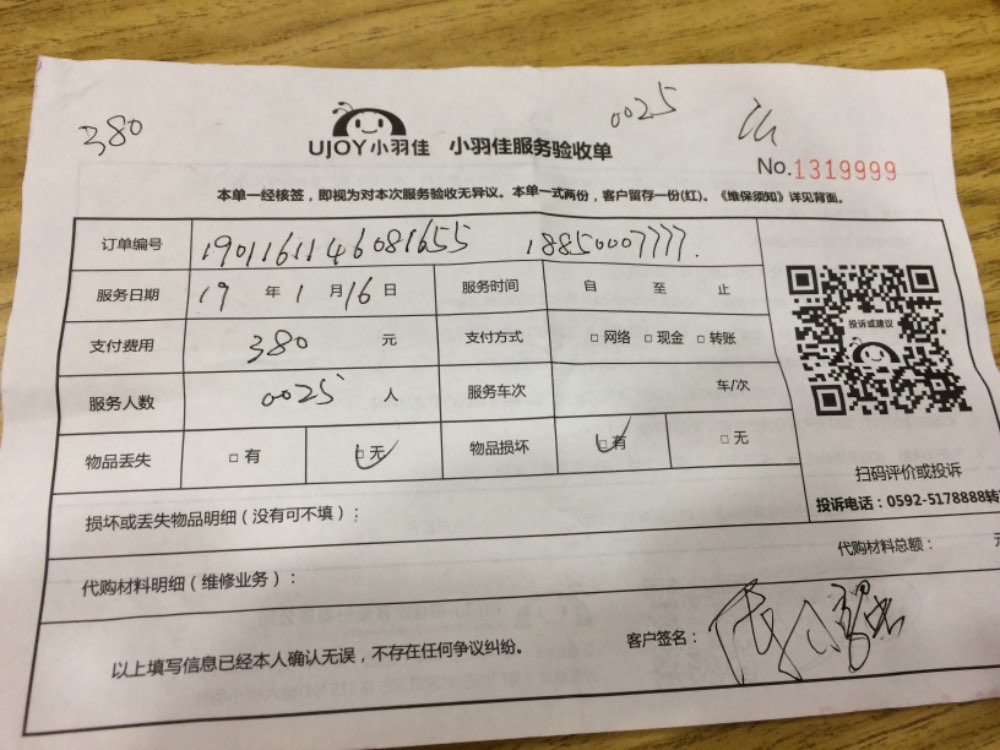 380
0025
UJOY小羽佳 小羽佳服务验收单
No.1319999
本单一经核签，即视为对本次服务验收无异议。本单一式两份，客户留存一份(红)。《维保须知》详见背面。
订单编号 1901161146081655 18850007777.
服务日期 19 年 1 月 16 日 服务时间 自 至 止
支付费用 380 元 支付方式 □ 网络 □ 现金 □ 转账
投诉或建议
服务人数 0025 人 服务车次 车/次
物品丢失 □ 有 □ 无 物品损坏 □ 有 □ 无
扫码评价或投诉
投诉电话：0592-5178888转
损坏或丢失物品明细（没有可不填）：
代购材料总额： 元
代购材料明细（维修业务）：
以上填写信息已经本人确认无误，不存在任何争议纠纷。 客户签名：